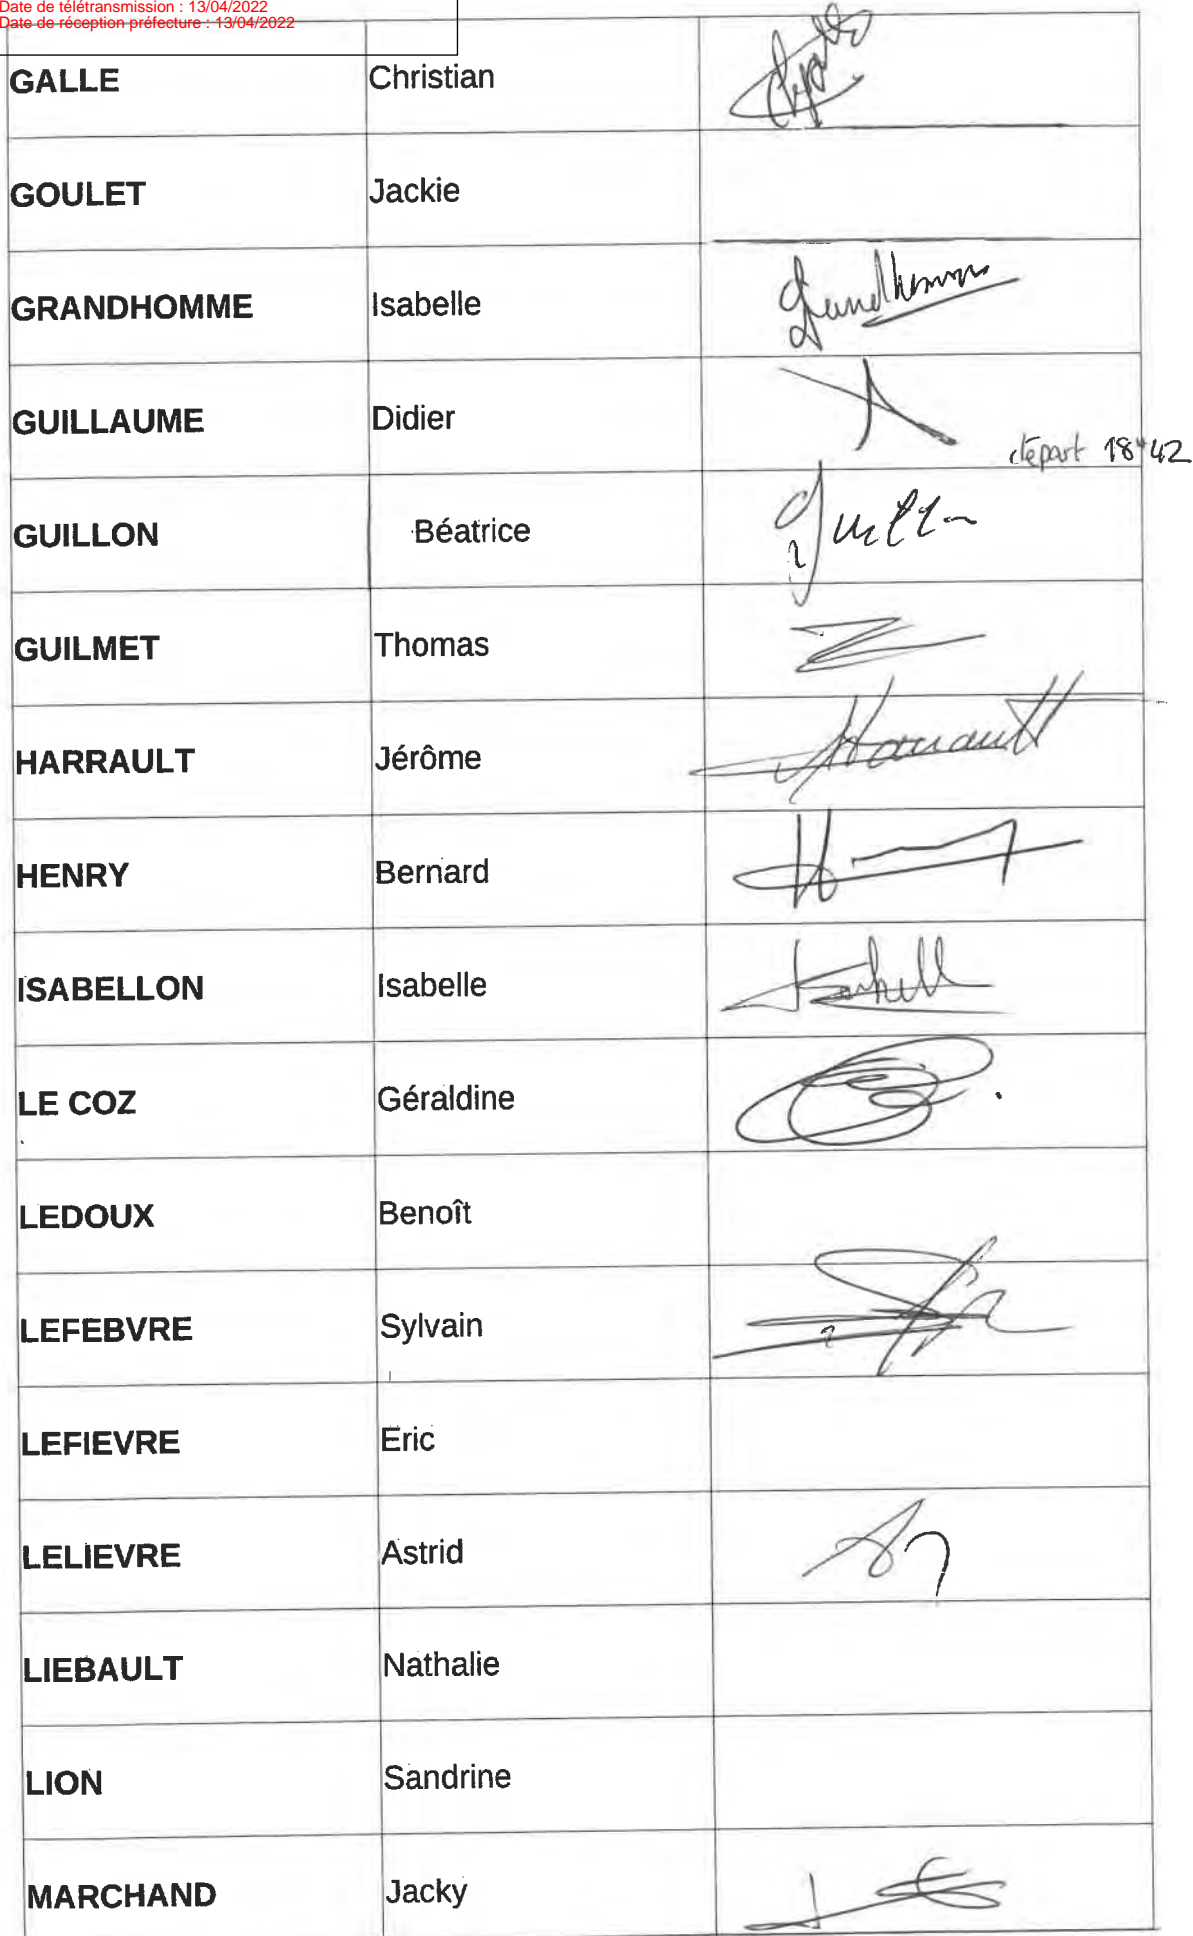 Date de télétransmission : 13/04/2022
Date de réception préfecture : 13/04/2022
GALLE Christian
GOULET Jackie
GRANDHOMME Isabelle Grandhomme
GUILLAUME Didier
départ 18h42
GUILLON Béatrice Guillon
GUILMET Thomas
HARRAULT Jérôme Harrault
HENRY Bernard
ISABELLON Isabelle
LE COZ Géraldine
LEDOUX Benoît
LEFEBVRE Sylvain
LEFIEVRE Eric
LELIEVRE Astrid
LIEBAULT Nathalie
LION Sandrine
MARCHAND Jacky